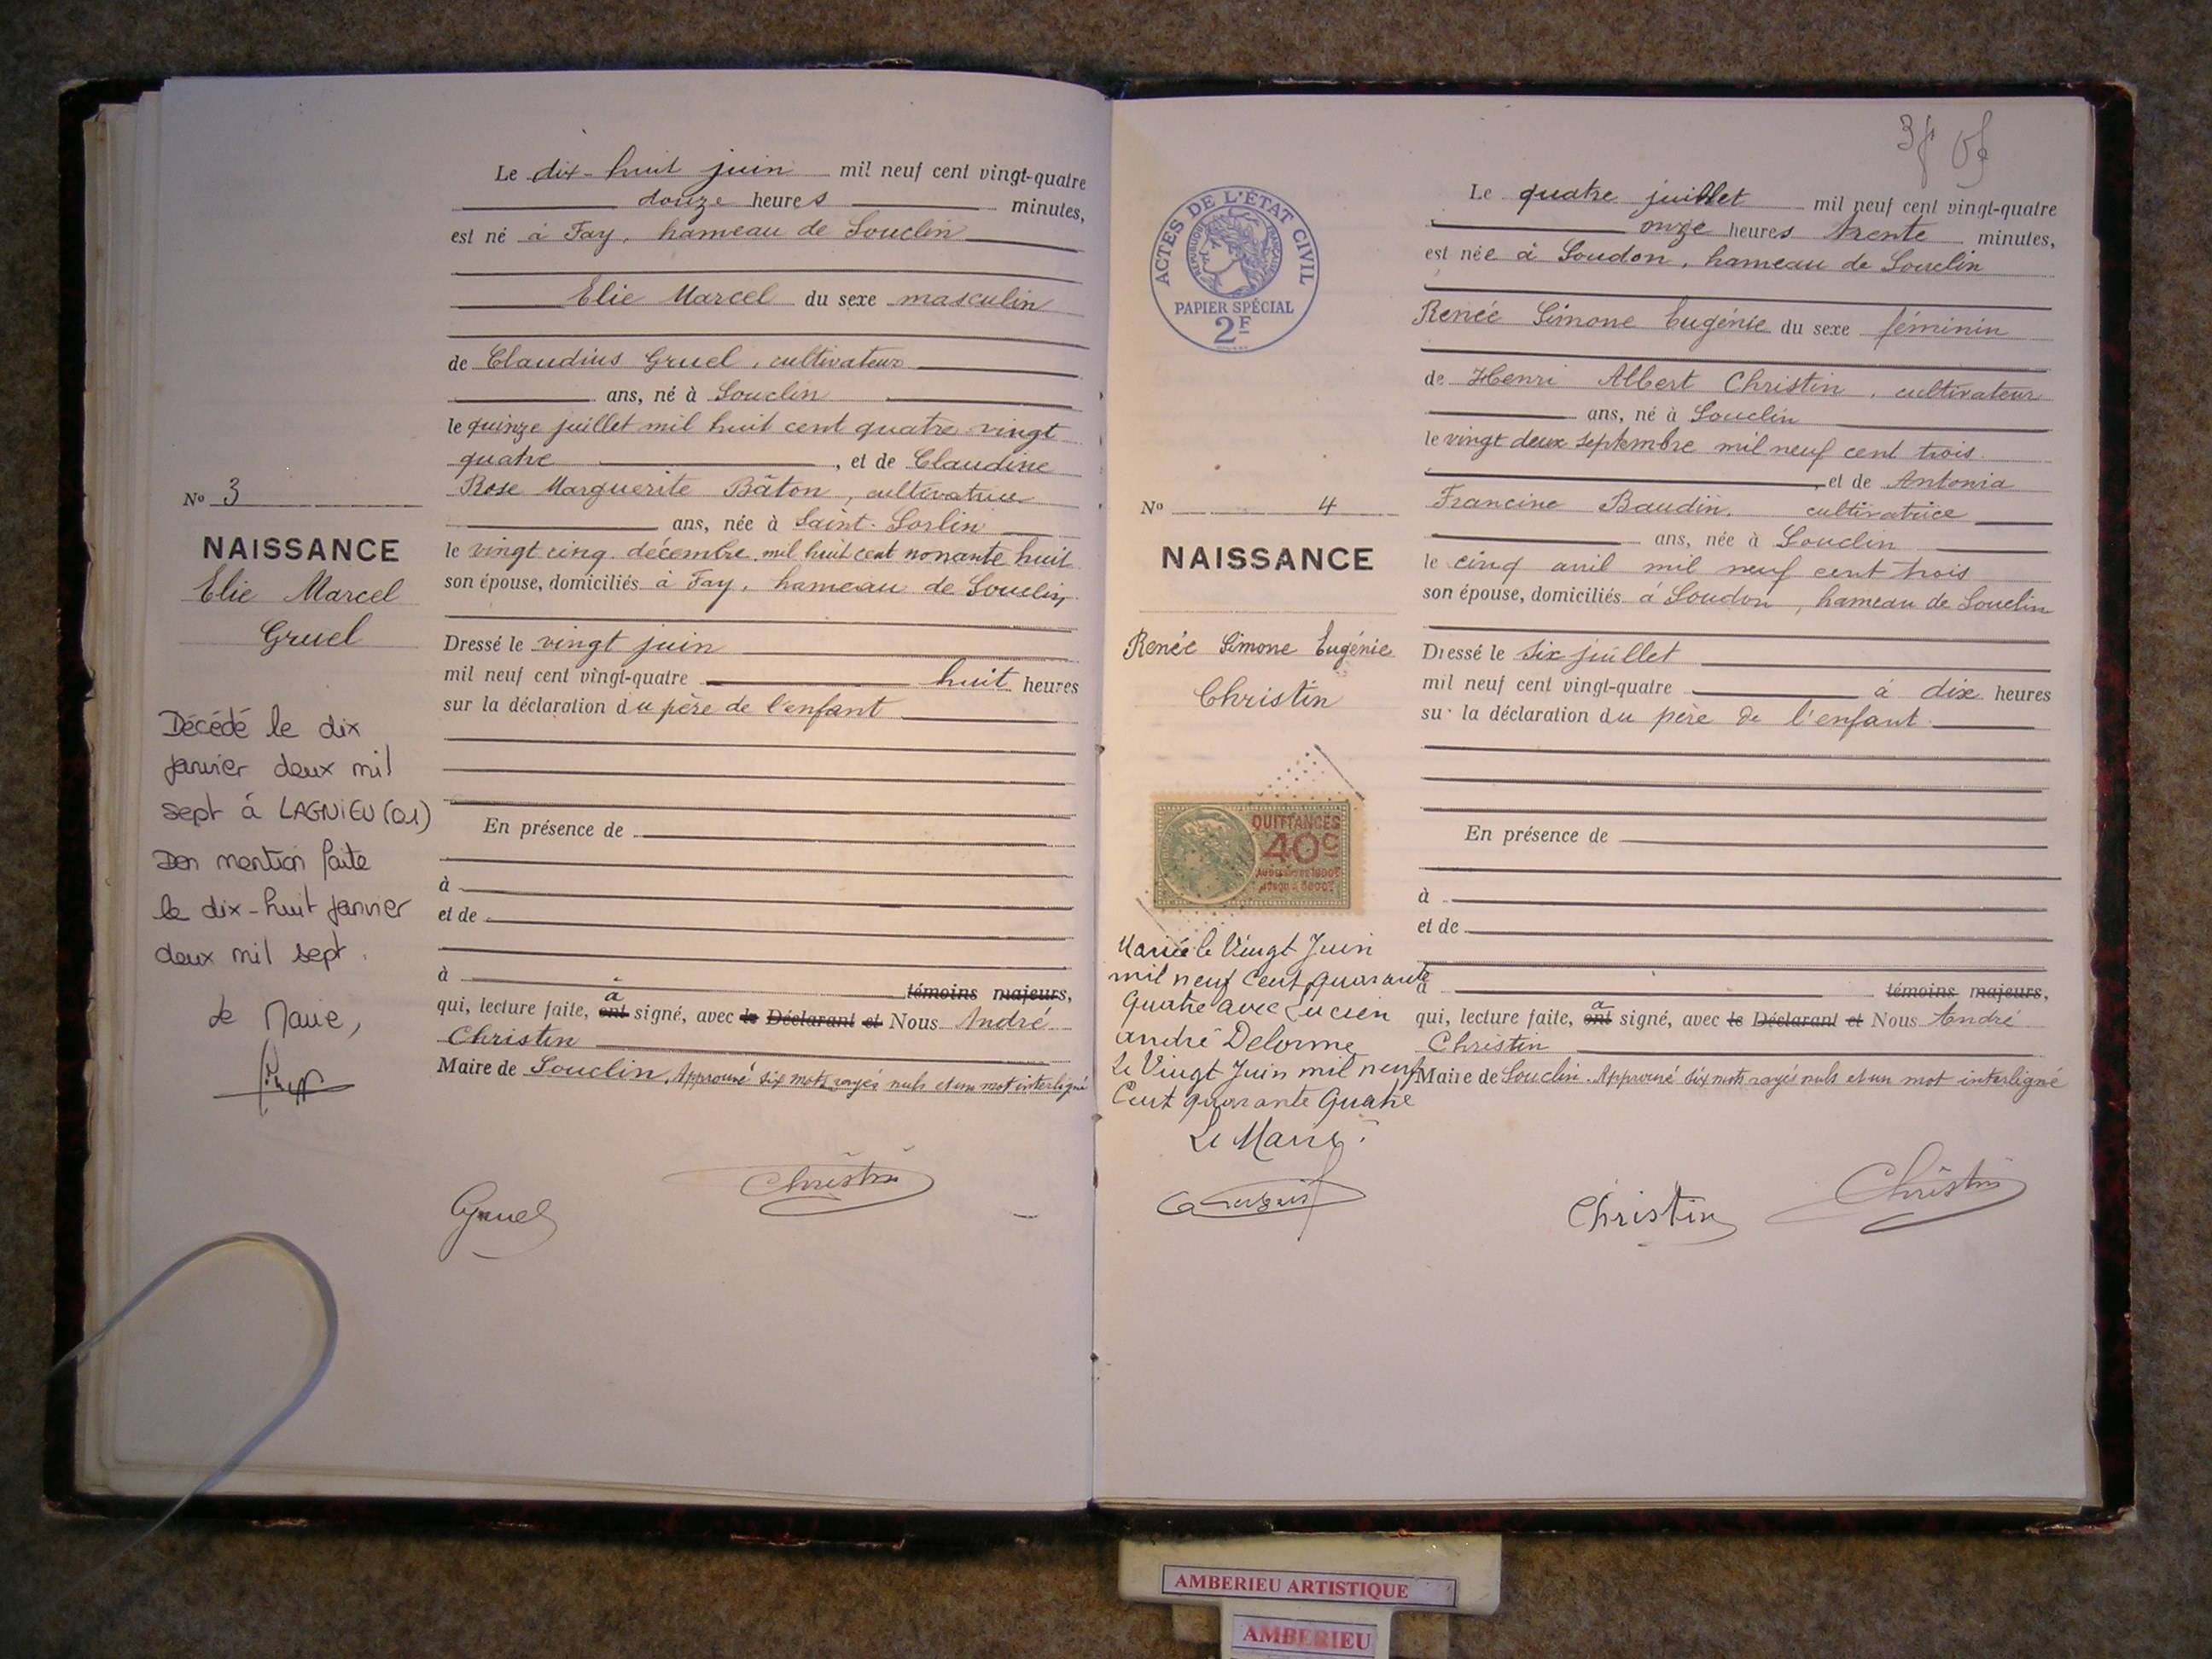 Le dix-huit juin mil neuf cent vingt-quatre
douze heures minutes,
est né à Fay, hameau de Souclin
Elie Marcel du sexe masculin
de Claudius Gruel, cultivateur
ans, né à Souclin
le quinze juillet mil huit cent quatre vingt
quatre , et de Claudine
Rose Marguerite Bâton, cultivatrice
ans, née à Saint-Sorlin
le vingt cinq décembre mil huit cent nonante huit
son épouse, domiciliés à Fay, hameau de Souclin
Dressé le vingt juin
mil neuf cent vingt-quatre huit heures
sur la déclaration du père de l'enfant
En présence de
à
et de
à témoins majeurs,
a
qui, lecture faite, ont signé, avec le Déclarant et Nous André
Christin
Maire de Souclin. Approuvé six mots rayés nuls et un mot interligné
Gruel
Christin
No 3
NAISSANCE
Elie Marcel
Gruel
Décédé le dix
janvier deux mil
sept à LAGNIEU (01)
Don mention faite
le dix-huit janvier
deux mil sept.
Le Maire,
ACTES DE L'ÉTAT CIVIL
RÉPUBLIQUE FRANÇAISE
PAPIER SPÉCIAL
2F
No 4
NAISSANCE
Renée Simone Eugénie
Christin
QUITTANCES
40c
Mariée le Vingt Juin
mil neuf Cent quarante
Quatre avec Lucien
André Delorme
Le Vingt Juin mil neuf
Cent quarante Quatre
Le Maire.
Le quatre juillet mil neuf cent vingt-quatre
onze heures trente minutes,
est née à Soudon, hameau de Souclin
Renée Simone Eugénie du sexe féminin
de Henri Albert Christin, cultivateur
ans, né à Souclin
le vingt deux septembre mil neuf cent trois
, et de Antonia
Francine Baudin, cultivatrice
ans, née à Souclin
le cinq avril mil neuf cent trois
son épouse, domiciliés à Soudon, hameau de Souclin
Dressé le six juillet
mil neuf cent vingt-quatre à dix heures
sur la déclaration du père de l'enfant
En présence de
à
et de
à témoins majeurs,
a
qui, lecture faite, ont signé, avec le Déclarant et Nous André
Christin
Maire de Souclin. Approuvé six mots rayés nuls et un mot interligné
Christin
Christin
AMBERIEU ARTISTIQUE
AMBERIEU